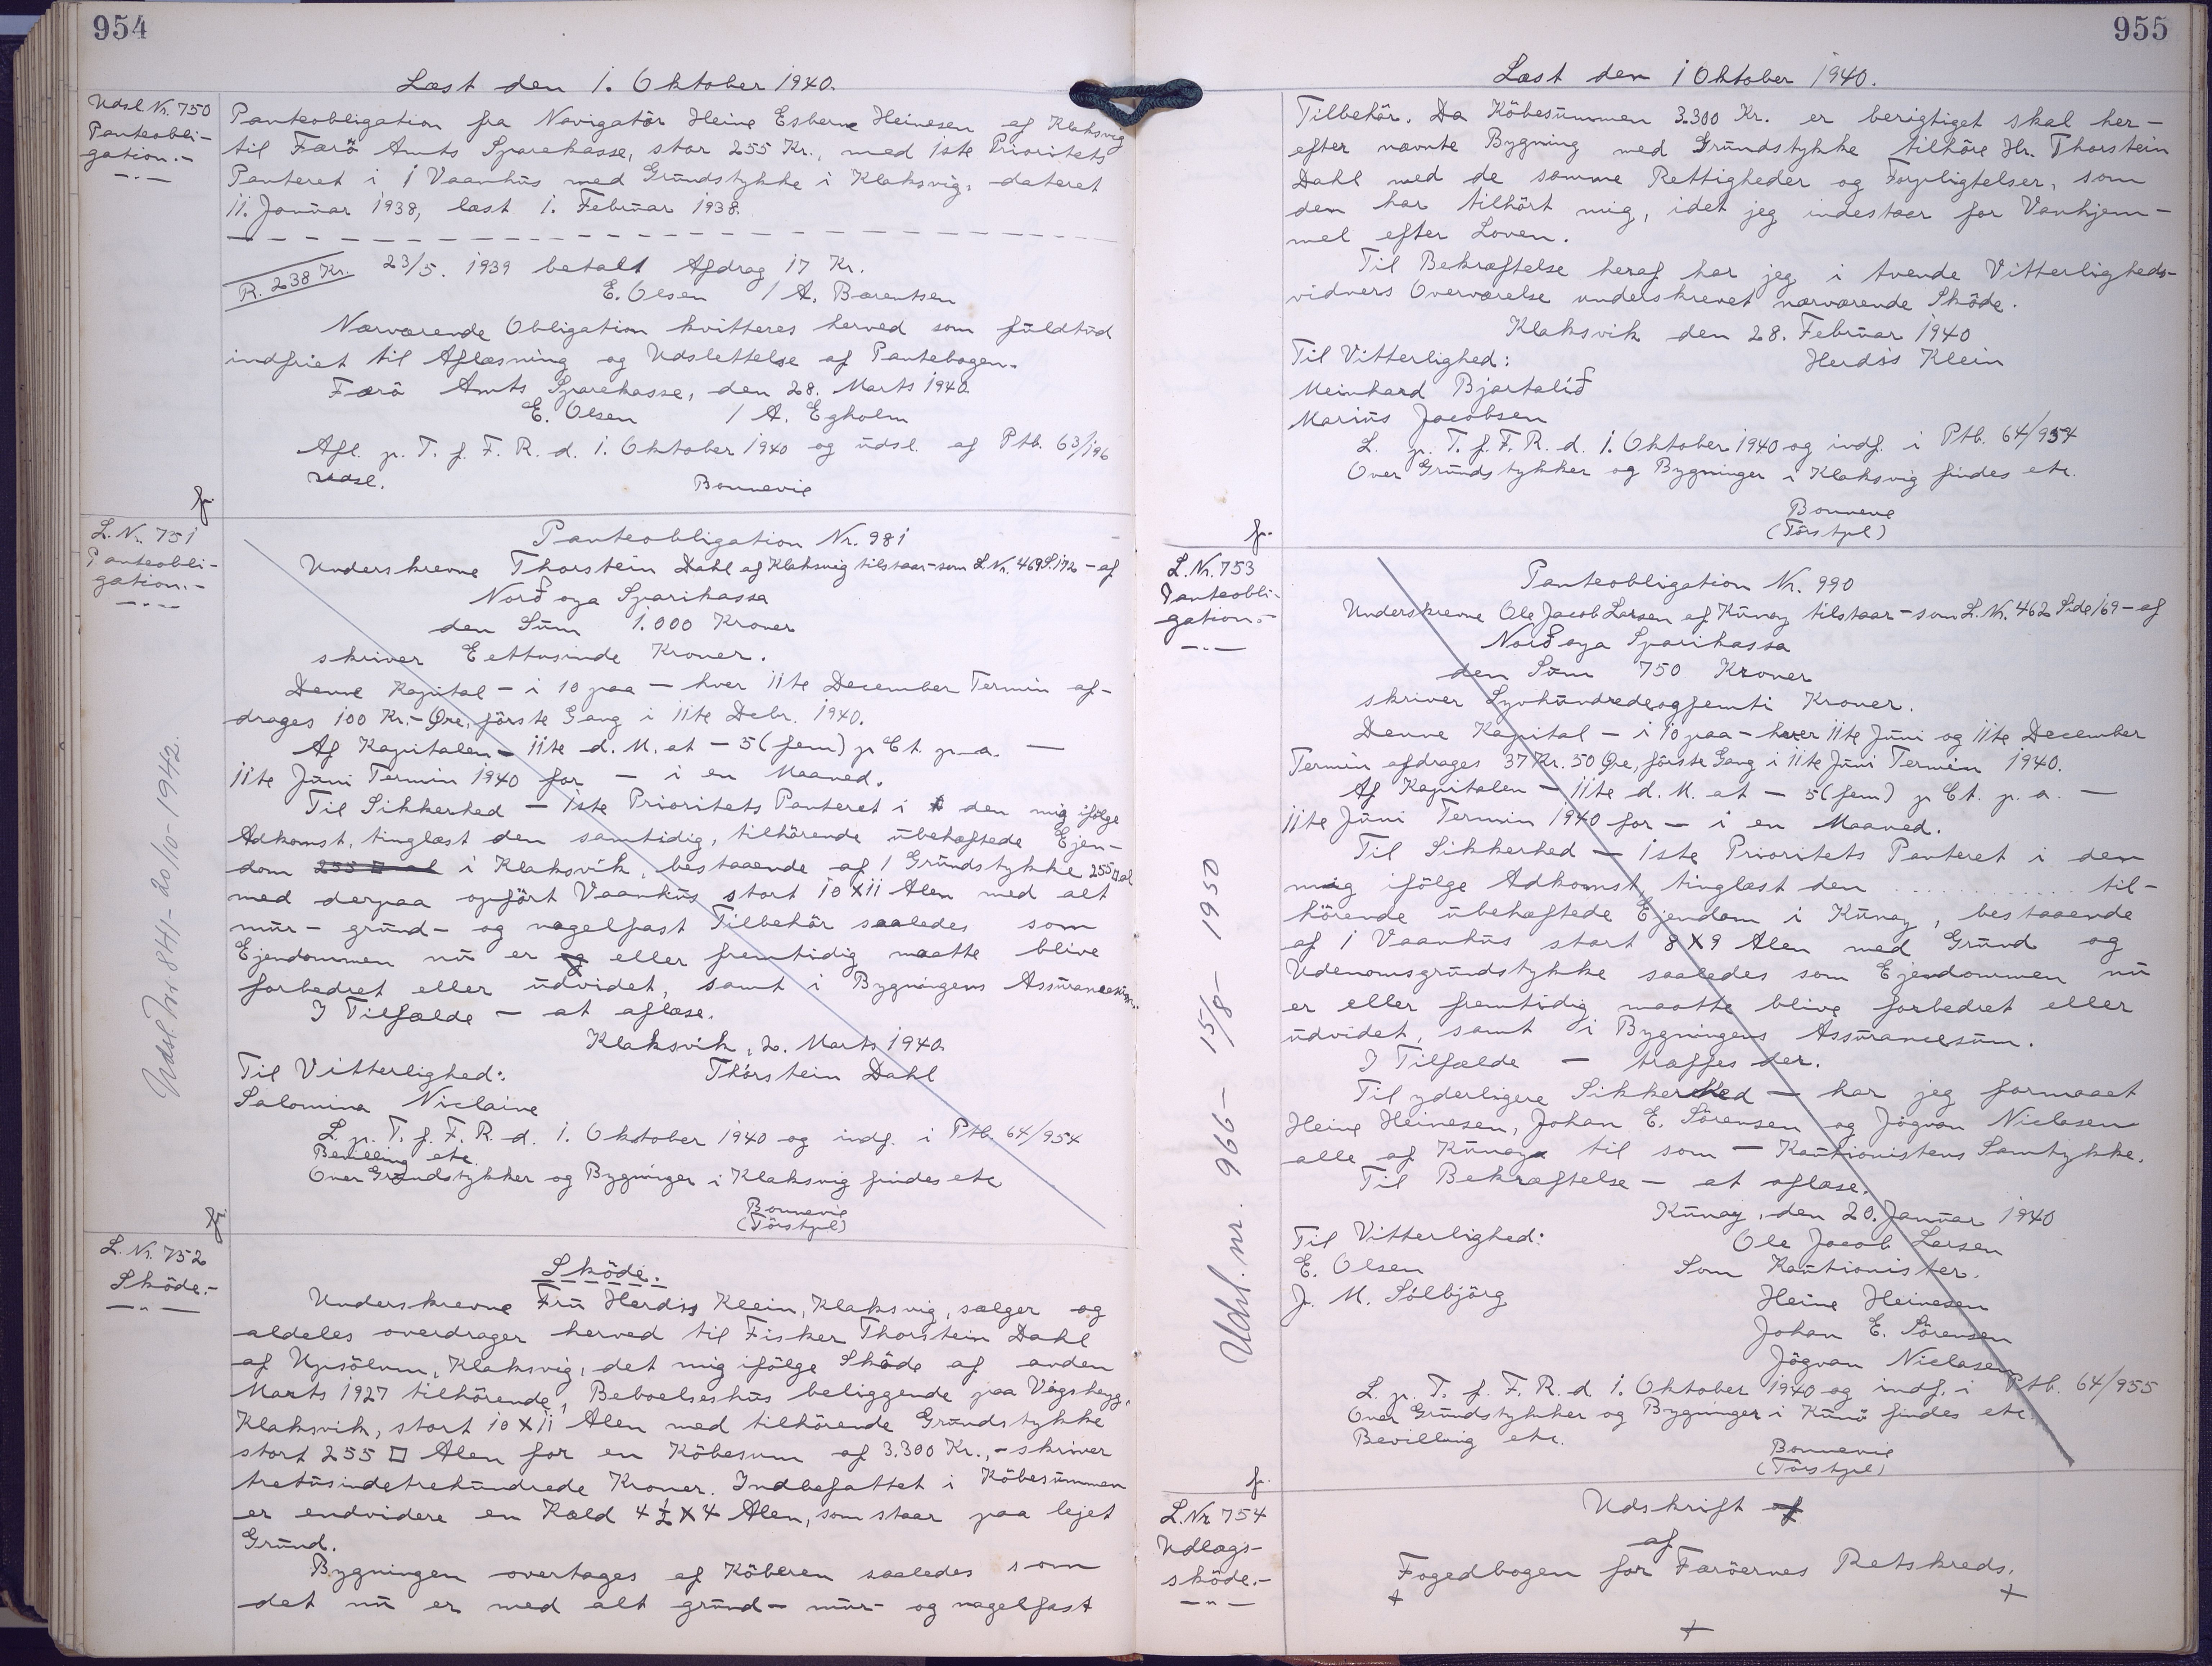 954
Læst den 1. Oktober 1940.
Udsl Nr. 750
Panteobli-
gation.-
Panteobligation fra Navigatör Heine Esberne Heinesen af Klaksvig
til Færö Amts Sparekasse, stor 255 Kr., med 1ste Prioritets
Panteret i 1 Vaanhus med Grundstykke i Klaksvig, dateret
11. Januar 1938, læst 1. Februar 1938.
R. 238 Kr. 23/5. 1939 betalt Afdrag 17 Kr.
E. Olsen / A. Bærentsen
Nærværende Obligation kvitteres herved som fuldtud
indfriet til Aflæsning og Udslettelse af Pantebogen.
Færö Amts Sparekasse, den 28. Marts 1940.
E. Olsen / A. Egholm
Afl. p. T. f. F. R. d. 1. Oktober 1940 og udsl. af Ptb. 63/196
Udsl.
Bonnevie
fr.
L. Nr. 751
Panteobli-
gation.-
Udsl. Nr. 841 - 20/10 1942.
Panteobligation Nr. 981
Underskrevne Thorstein Dahl af Klaksvig tilstaar - som L. Nr. 469 S. 172 - af
Norðoya Sparikassa
den Sum 1.000 Kroner
skriver Eettusinde Kroner.
Denne Kapital - i 10 paa - hver 11te December Termin af-
drages 100 Kr. - Øre, förste Gang i 11te Decbr. 1940.
Af Kapitalen - 11te d. M. at - 5 (fem) p Ct. p. a. -
11te Juni Termin 1940 for - i en Maaned.
Til Sikkerhed - 1ste Prioritets Panteret i den mig ifölge
Adkomst, tinglæst den samtidig, tilhörende übehæftede Ejen-
dom 255 □ al i Klaksvik, bestaaende af 1 Grundstykke 255 □ al
med derpaa opfört Vaanhus stort 10 X 11 Alen med alt
mur- grund- og nagelfast Tilbehör saaledes som
Ejendommen nu er og eller fremtidig maatte blive
forbedret eller udvidet, samt i Bygningens Assurancesum.
I Tilfælde - at aflæse.
Klaksvik, 2. Marts 1940.
Til Vitterlighed: Thórstein Dahl
Salomina Niclaine
L. p. T. f. F. R. d. 1. Oktober 1940 og indf. i Ptb. 64/954
Bevilling etc.
Over Grundstykker og Bygninger i Klaksvig findes etc
Bonnevie
(Tórstpl)
fr.
L. Nr. 752
Sköde.-
Sköde.
Underskrevne Frü Herdis Klein, Klaksvig, sælger og
aldeles overdrager herved til Fisker Thorstein Dahl
af Upsölum, Klaksvig, det mig ifölge Sköde af anden
Marts 1927 tilhörende, Beboelseshus beliggende paa Vágsheyg,
Klaksvik, stort 10 X 11 Alen med tilhörende Grundstykke
stort 255 □ Alen for en Köbesum af 3.300 Kr., - skriver
tretusindetrehundrede Kroner. Indbefattet i Köbesummen
er endvidere en Kæld 4 1/2 X 4 Alen, som staar paa lejet
Grund.
Bygningen overtages af Köberen saaledes som
det nu er med alt grund- mur- og nagelfast
955
Læst den 1 Oktober 1940.
Tilbehör. Da Köbesummen 3.300 Kr. er berigtiget skal her-
efter nævnte Bygning med Grundstykke tilhöre Hr. Thorstein
Dahl med de samme Rettigheder og Forpligtelser, som
den har tilhört mig, idet jeg indestaar for Vanhjem-
mel efter Loven.
Til Bekræftelse heraf har jeg i tvende Vitterligheds-
vidners Overværelse underskrevet nærværende Sköde.
Klaksvik den 28. Februar 1940
Til Vitterlighed: Herdis Klein
Meinhard Bjartalíð
Marius Jacobsen
L. p. T. f. F. R. d. 1. Oktober 1940 og indf. i Ptb. 64/954
Over Grundstykker og Bygninger i Klaksvig findes etc.
Bonnevie
(Tórstpl)
fr.
L. Nr. 753
Panteobli-
gation.-
Udsl. nr. 966 - 15/8 - 1950
Panteobligation Nr. 990
Underskrevne Ole Jacob Larsen af Kunoy tilstaar - som L. Nr. 462 Side 169 - af
Norðoya Sparikassa
den Sum 750 Kroner
skriver Syvhundredeogfemti Kroner.
Denne Kapital - i 10 paa - hver 11te Juni og 11te December
Termin afdrages 37 Kr. 50 Øre, förste Gang i 11te Juni Termin 1940.
Af Kapitalen - 11te d. M. at - 5 (fem) p Ct. p. a. -
11te Juni Termin 1940 for - i en Maaned.
Til Sikkerhed - 1ste Prioritets Panteret i den
mig ifölge Adkomst, tinglæst den ............ til-
hörende übehæftede Ejendom i Kunoy, bestaaende
af 1 Vaanhus stort 8 X 9 Alen med Grund og
Udenomsgrundstykke saaledes som Ejendommen nu
er eller fremtidig maatte blive forbedret eller
udvidet, samt i Bygningens Assurancesum.
I Tilfælde - træffes der.
Til yderligere Sikkerhed - har jeg formaaet
Heine Heinesen, Johan E. Sörensen og Jógvan Niclasen
alle af Kunoy til som - Kautionistens Samtykke.
Til Bekræftelse - at aflæse.
Kunoy, den 20. Januar 1940
Til Vitterlighed: Ole Jacob Larsen
E. Olsen Som Kautionister.
J. M. Sólbjörg Heine Heinesen
Johan E. Sörensen
Jógvan Niclasen
L. p. T. f. F. R. d. 1. Oktober 1940 og indf. i Ptb. 64/955
Over Grundstykker og Bygninger i Kunö findes etc
Bevilling etc.
Bonnevie
(Tórstpl)
fr.
L. Nr 754
Udlægs-
sköde.-
Udskrift af
af
Fogedbogen for Færöernes Retskreds.